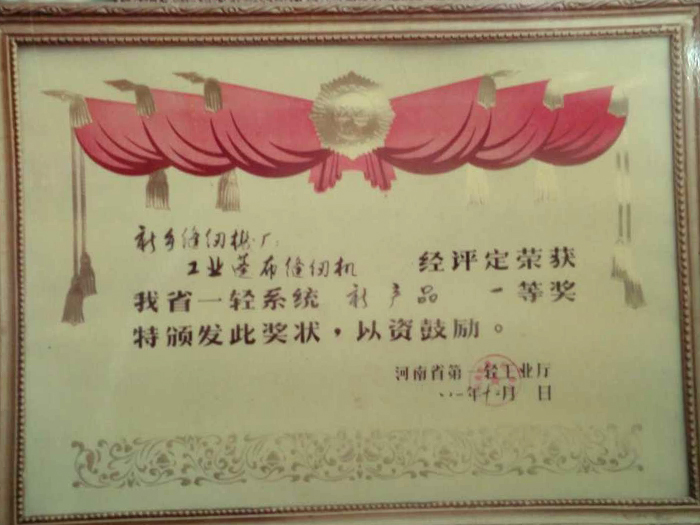 新乡缝纫机厂:
工业篷布缝纫机 经评定荣获
我省一轻系统 新产品 一等奖
特颁发此奖状，以资鼓励。
河南省第一轻工业厅
年十二月 日